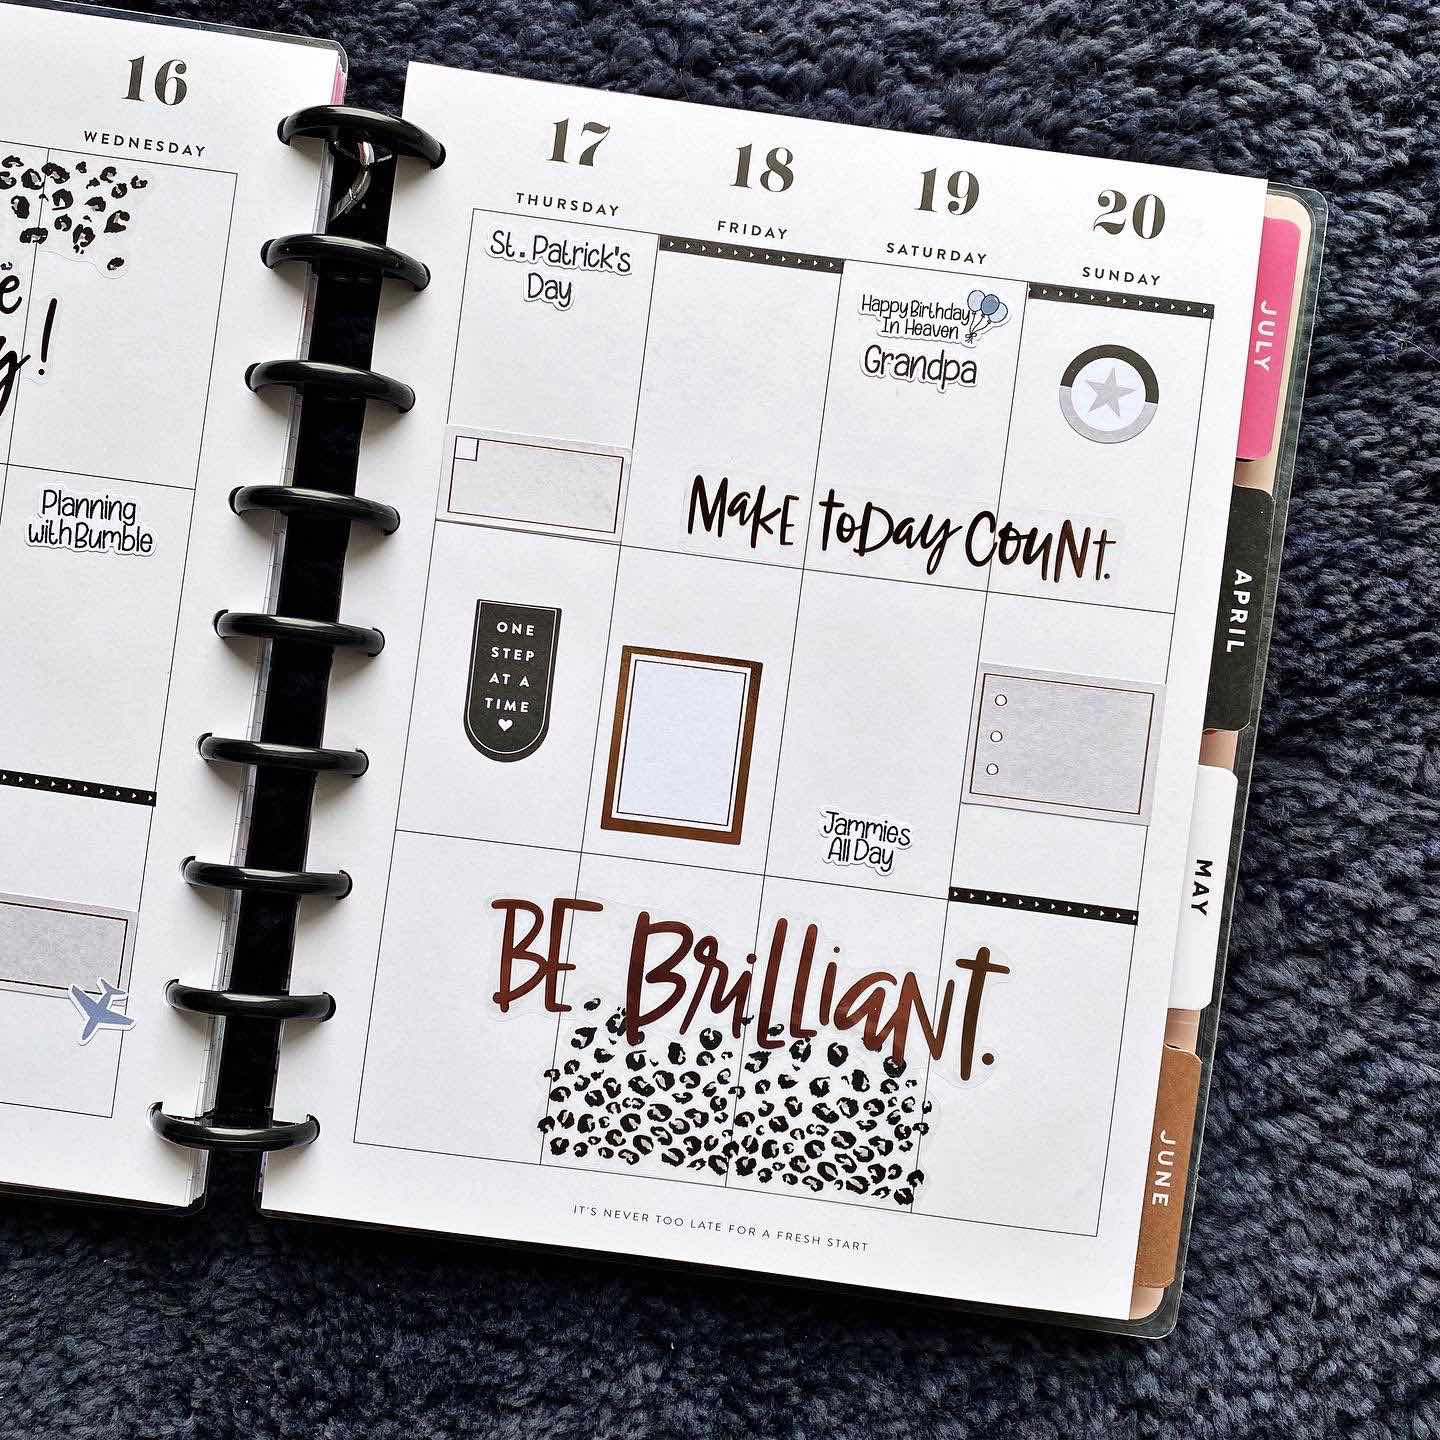 16
WEDNESDAY
!
Planning
with Bumble
17
THURSDAY
St. Patrick's
Day
ONE
STEP
AT A
TIME
18
FRIDAY
19
SATURDAY
Happy Birthday
In Heaven
Grandpa
Jammies
All Day
20
SUNDAY
MakE toDay CouNt.
BE BrilliaNt.
IT'S NEVER TOO LATE FOR A FRESH START
JULY
APRIL
MAY
JUNE